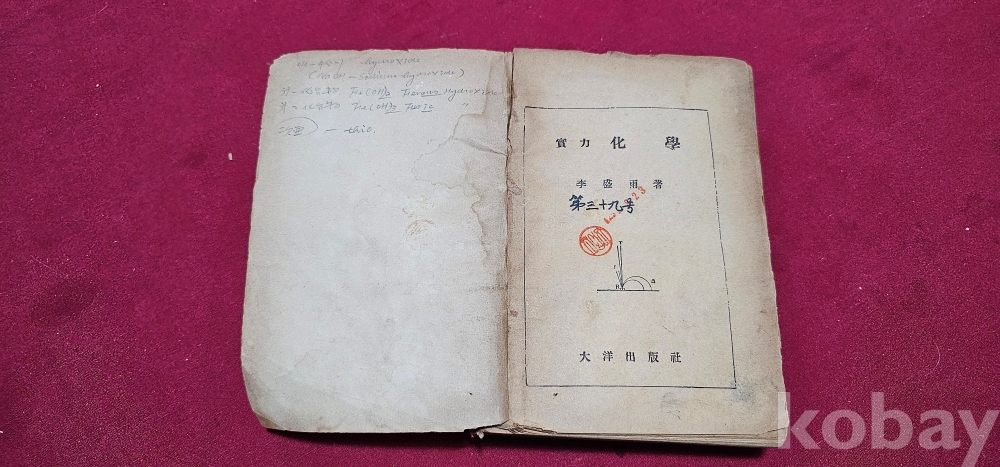 hydroxide
(NaOH — Sodium hydroxide)
Fe(OH)₂ Ferrous Hydroxide
Fe(OH)₃ Ferric 〃
— thio.
實力 化學
李盛雨 著
第三十九号
大洋出版社
kobay